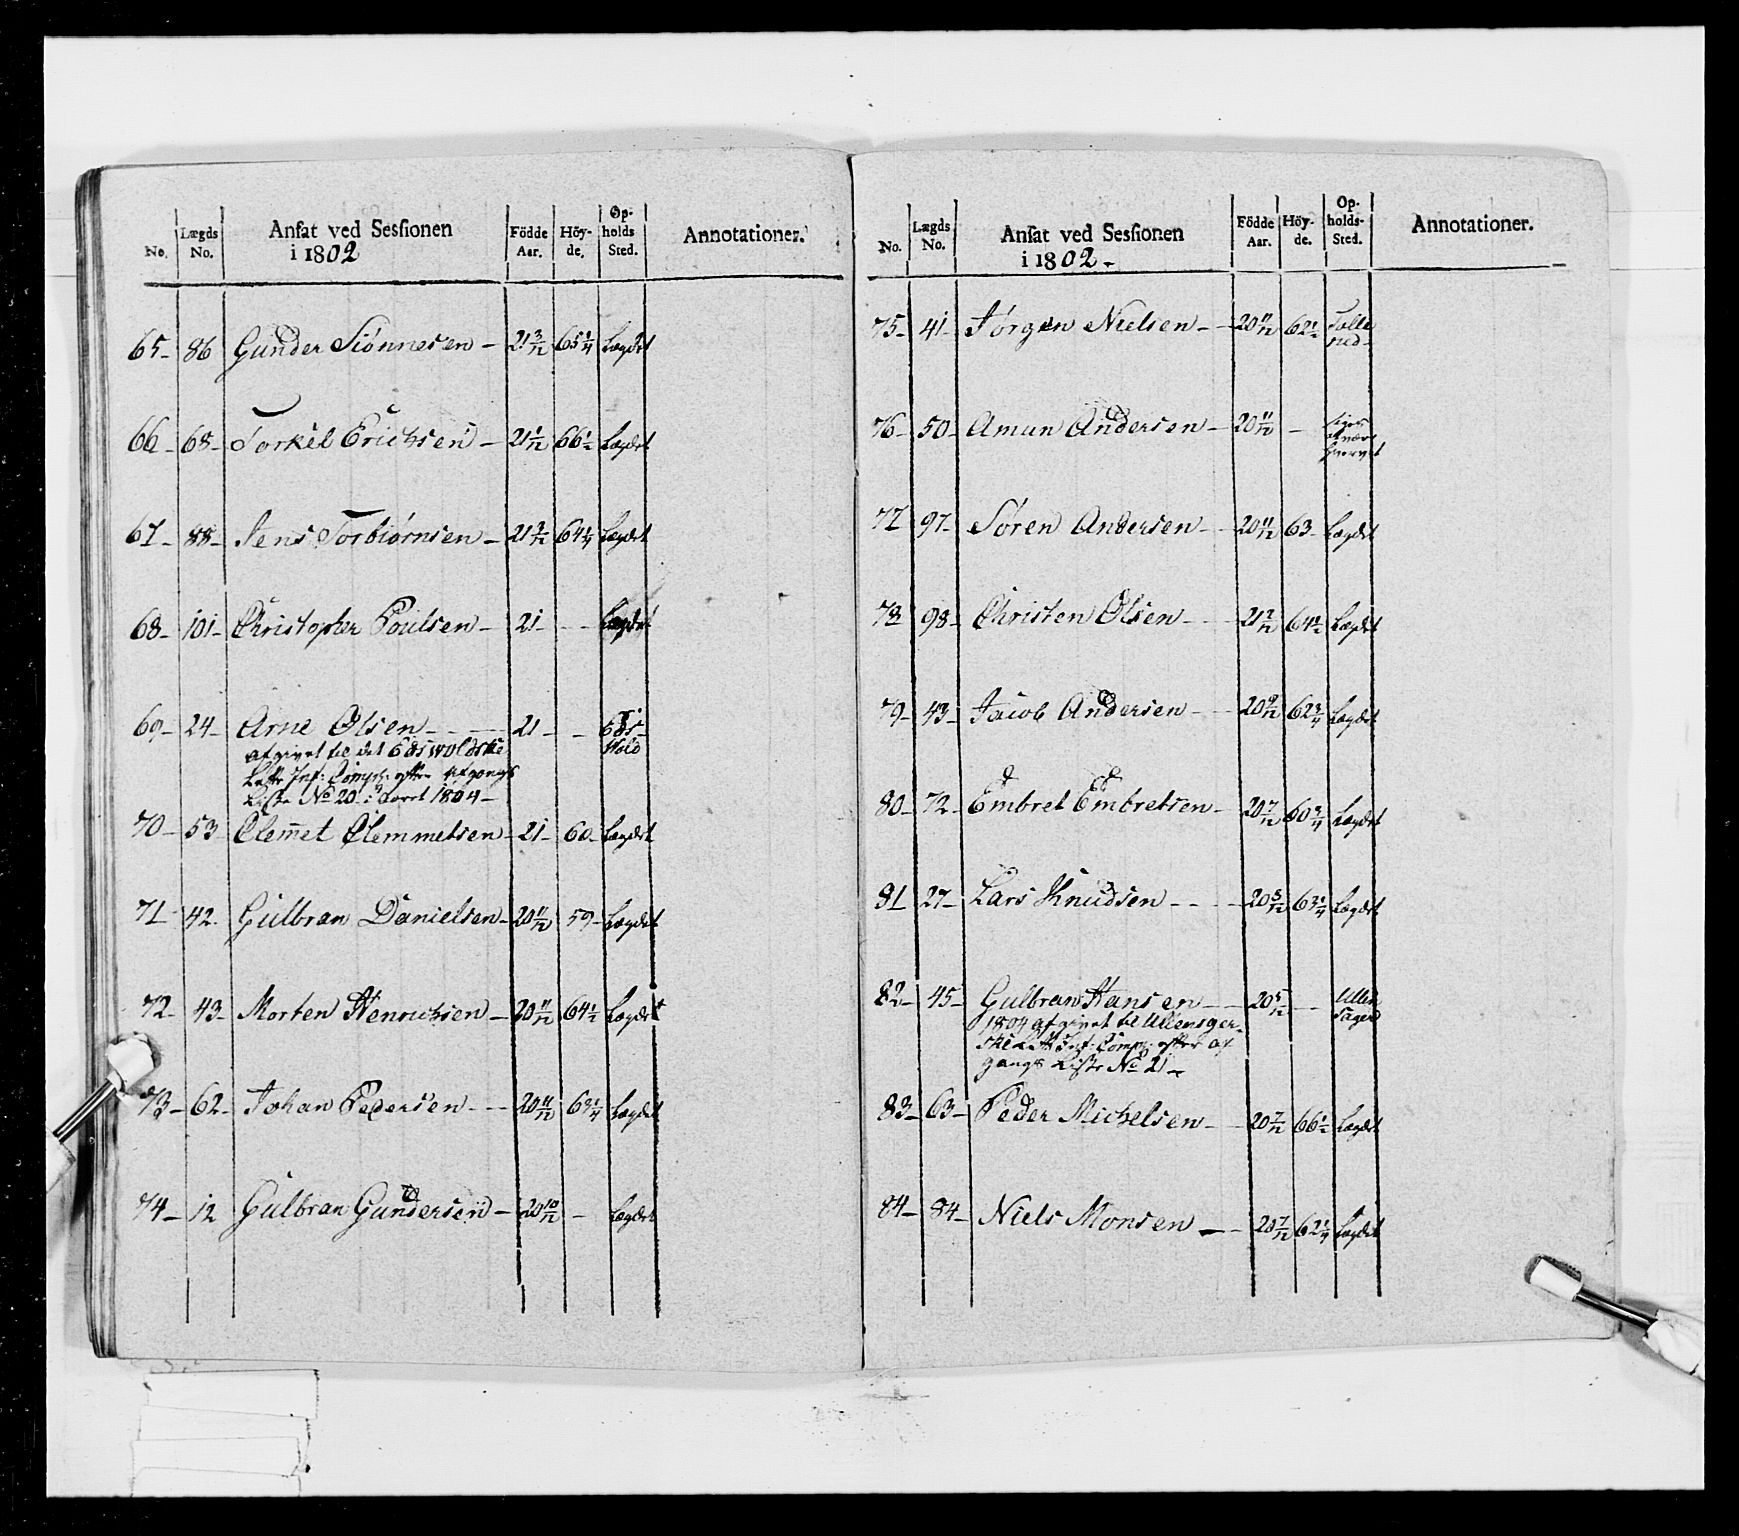 No. Lægds No. Ansat ved Sessionen i 1802 Födde Aar. Höy-de. Op-holds Sted. Annotationer.
65- 86 Gunder Siönnesen - 21 3/12 65 1/4 Lægdet
66- 68- Torkel Erichsen - 21 1/12 66 1/2 Lægdet
67- 88- Jens Torbiörnsen - 21 3/12 64 1/4 Lægdet
68- 101- Christopher Poulsen - 21- - - Lægdet
69- 24- Arne Olsen - - - 21 - - Eds-
afgivet til det Edswoldske Wold
Lette Inf: Comp: efter Afgangs
Liste No 20 i Aaret 1804 -
70- 53 Clem̅et Clemmetsen - 21- 60- Lægdet
71- 42- Gulbran Danielsen - 20 11/12 59- Lægdet
72- 43- Morten Henrichsen - 20 11/12 64 1/2 Lægdet
73- 62- Johan Pedersen - - - 20 11/12 63 1/4 Lægdet
74- 12 Gulbran Gundersen - 20 10/12 - Lægdet
No. Lægds No. Ansat ved Sessionen i 1802 - Födde Aar. Höy-de. Op-holds-Sted. Annotationer.
75- 41- Jörgen Nielsen - - 20 11/12 62 1/2
76- 50- Amun Andersen - 20 11/12 -
77 97- Sören Andersen - - 20 11/12 63- Lægdet
78 98- Christen Olsen - - - 21 2/12 64 1/2 Lægdet
79- 43- Jacob Andersen - - 20 9/12 62 3/4 Lægdet
80- 72- Embret Embretsen - 20 7/12 60 3/4 Lægdet
81 27- Lars Knudsen - - - 20 5/12 63 1/4 Lægdet
82- 45- Gulbran Hansen - - 20 5/12 - - Ullen
1804 afgivet til Ullensger- sager
ske Lette Inf: Comp: efter af
gangs Liste No 21 -
83- 63- Peder Michelsen - - 20 7/12 66 1/2 Lægdet
84- 84- Niels Monsen - - 20 7/12 62 1/4 Lægdet